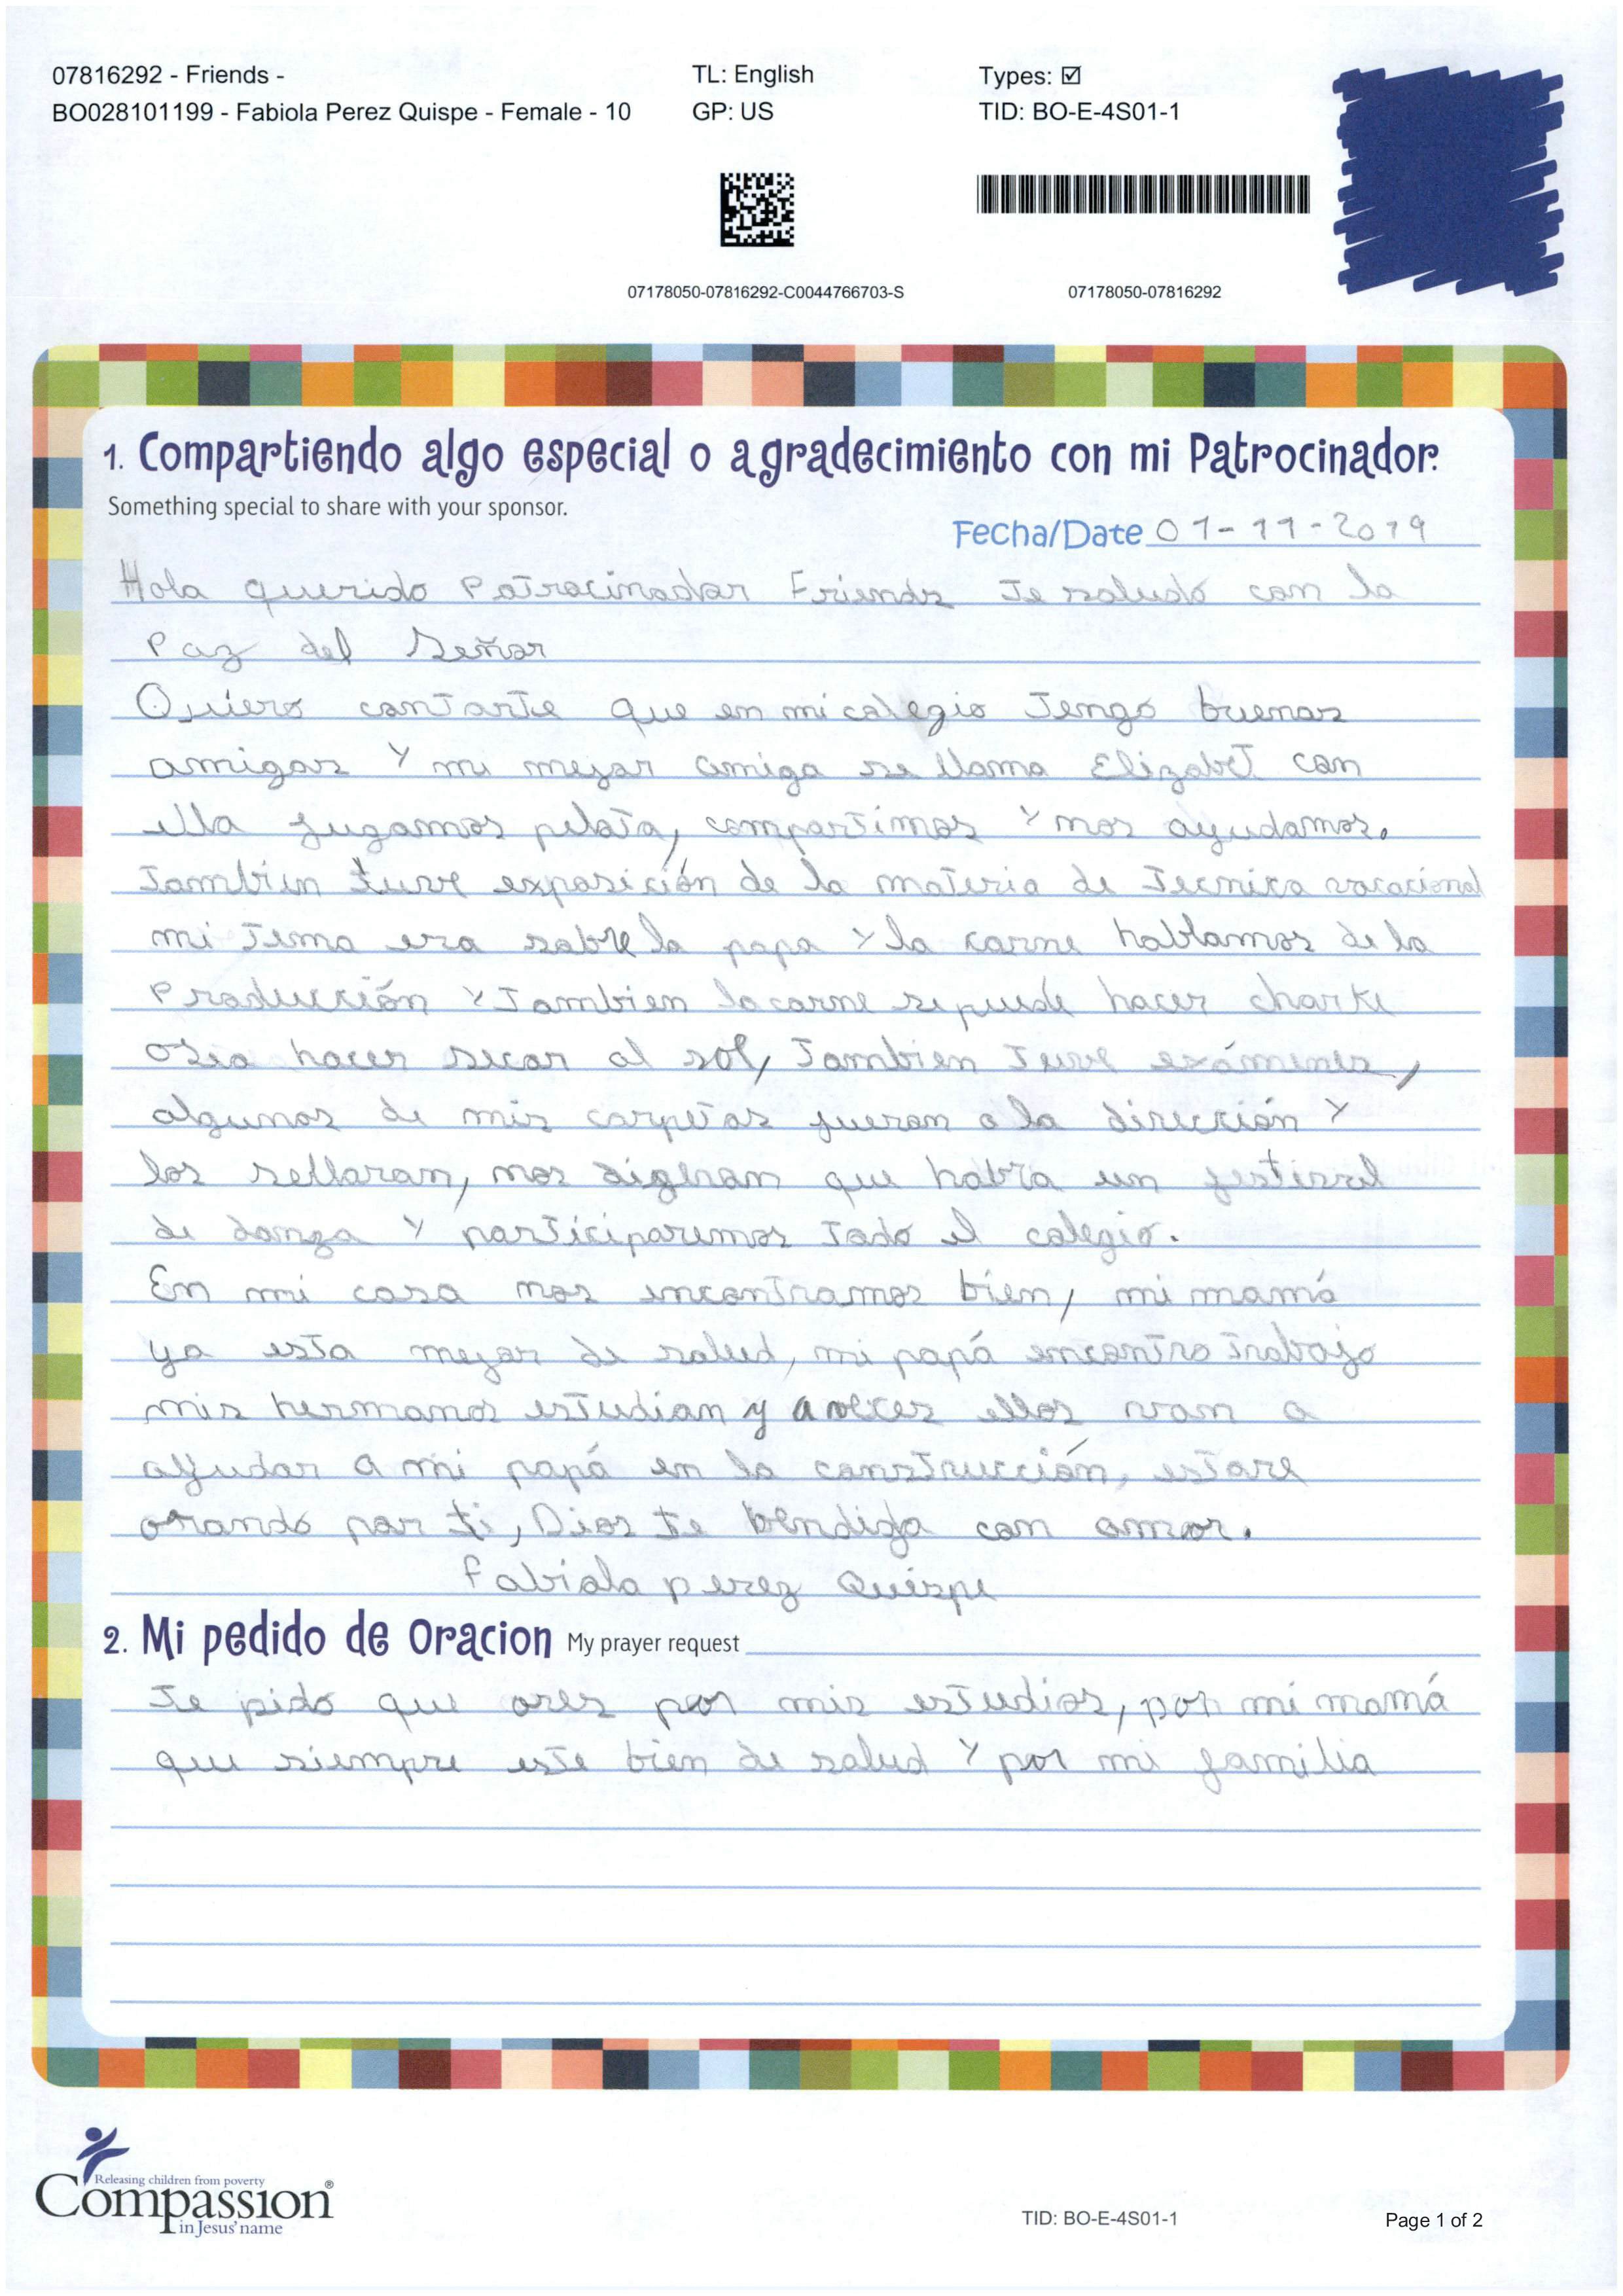 07816292 - Friends -
TL: English
Types: ☑
BO028101199 - Fabiola Perez Quispe - Female - 10
GP: US
TID: BO-E-4S01-1
07178050-07816292-C0044766703-S
07178050-07816292
1. Compartiendo algo especial o agradecimiento con mi Patrocinador.
Something special to share with your sponsor.
Fecha/Date 01-11-2019
Hola querido Patrocinador Friends Te saludo con la
Paz del Señor
Quiero contarte que en mi colegio Tengo buenas
amigas y mi mejor amiga se llama Elizabet con
ella jugamos pelota, compartimos y nos ayudamos.
Tambien tuve exposición de la materia de Tecnica vocacional
mi Tema era sobre la papa y la carne hablamos de la
Producción y Tambien la carne se puede hacer charke
osea hacer secar al sol, Tambien Tuve exámenes,
algunas de mis carpetas fueron a la dirección y
los sellaron, nos digieron que habra un festival
de danza y participaremos Todo el colegio.
En mi casa nos encontramos bien, mi mamá
ya esta mejor de salud, mi papá encontro Trabajo
mis hermanos estudian y a veces ellos van a
ayudar a mi papá en la construcción, estare
orando por ti, Dios te bendiga con amor.
Fabiola perez Quispe
2. Mi pedido de Oracion My prayer request
Te pido que ores por mis estudios, por mi mamá
que siempre este bien de salud y por mi familia
Releasing children from poverty
Compassion®
in Jesus' name
TID: BO-E-4S01-1
Page 1 of 2